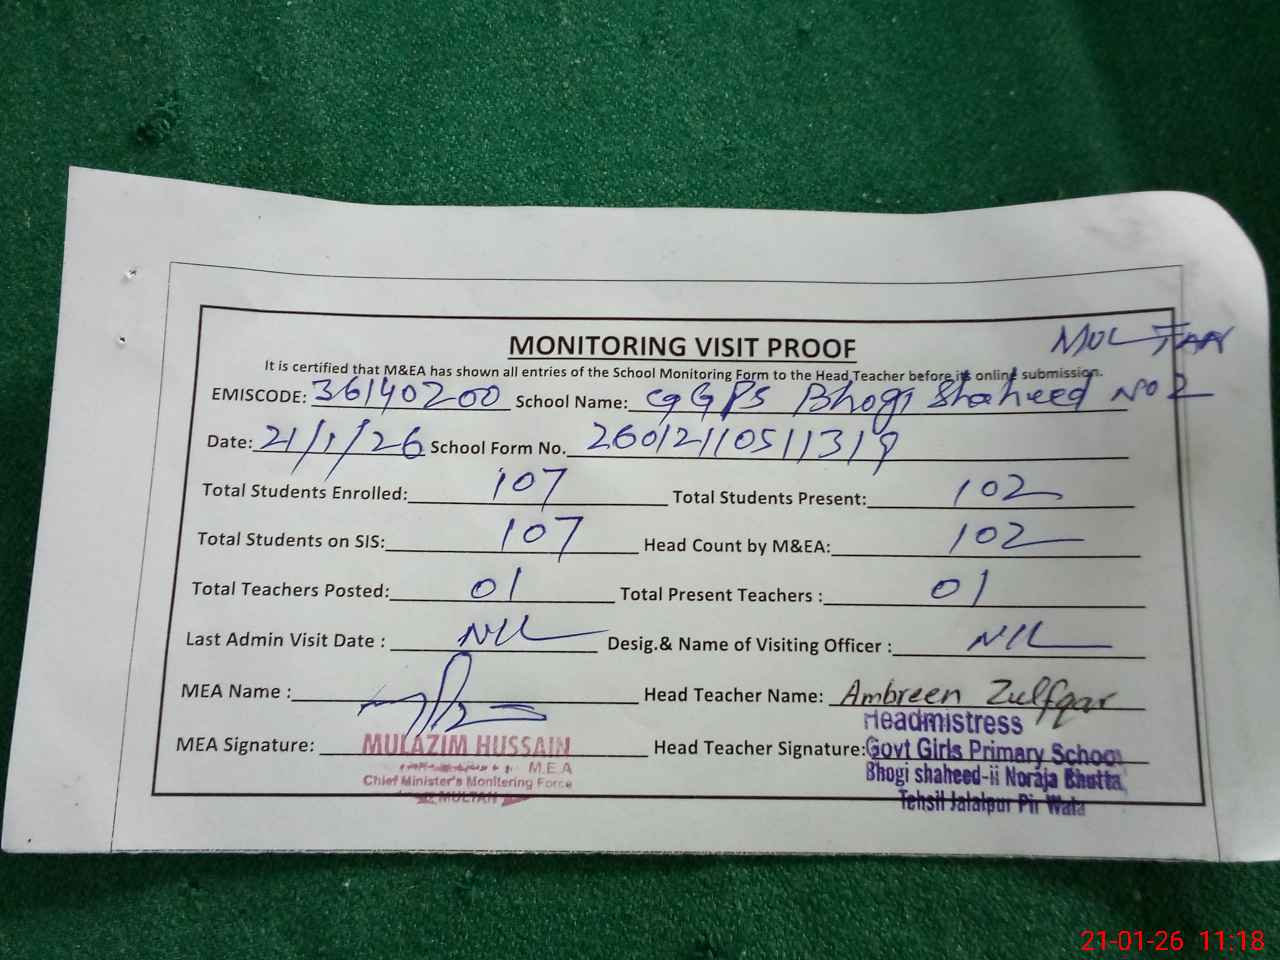 MULTAN
MONITORING VISIT PROOF
It is certified that M&EA has shown all entries of the School Monitoring Form to the Head Teacher before its online submission.
EMISCODE: 36140200 School Name: GGPS Bhogi Shaheed NO 2
Date: 21/1/26 School Form No. 2601211051131
Total Students Enrolled: 107 Total Students Present: 102
Total Students on SIS: 107 Head Count by M&EA: 102
Total Teachers Posted: 01 Total Present Teachers : 01
Last Admin Visit Date : NIL Desig.& Name of Visiting Officer : NIL
MEA Name : Head Teacher Name: Ambreen Zulfqar
MEA Signature: Head Teacher Signature:
MULAZIM HUSSAIN
M.E.A
Chief Minister's Monitering Force
MULTAN
Headmistress
Govt Girls Primary School
Bhogi shaheed-ii Noraja Bhutta,
Tehsil Jalalpur Pir Wala
21-01-26 11:18